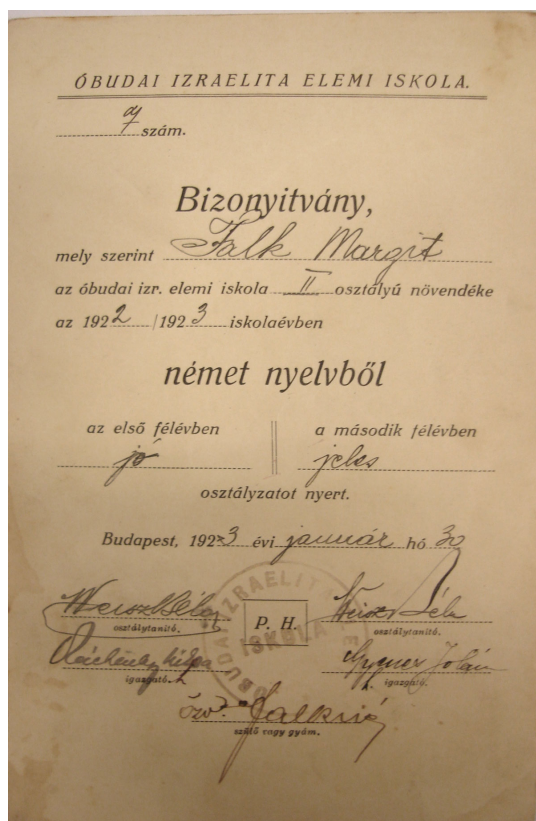 ÓBUDAI IZRAELITA ELEMI ISKOLA.
9 szám.
Bizonyitvány,
mely szerint Falk Margit
az óbudai izr. elemi iskola II osztályú növendéke
az 1922/1923 iskolaévben
német nyelvből
az első félévben a második félévben
jó jeles
osztályzatot nyert.
Budapest, 1923 évi január hó 30
Weisz Béla P. H. Weisz Béla
osztálytanitó. osztálytanitó.
igazgató. igazgató.
özv. Falk
szülő vagy gyám.
ÓBUDAI IZRAELITA
ISKOLA